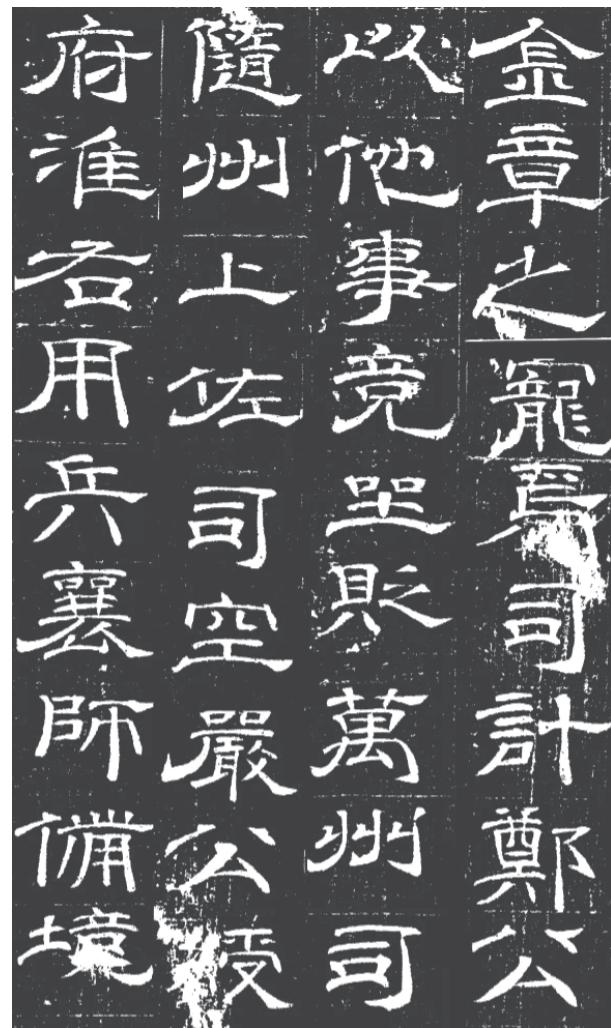 金章之寵焉司計鄭公
以他事竟坐貶萬州司
隨州上佐司空嚴公綬
府淮右用兵襄師備境